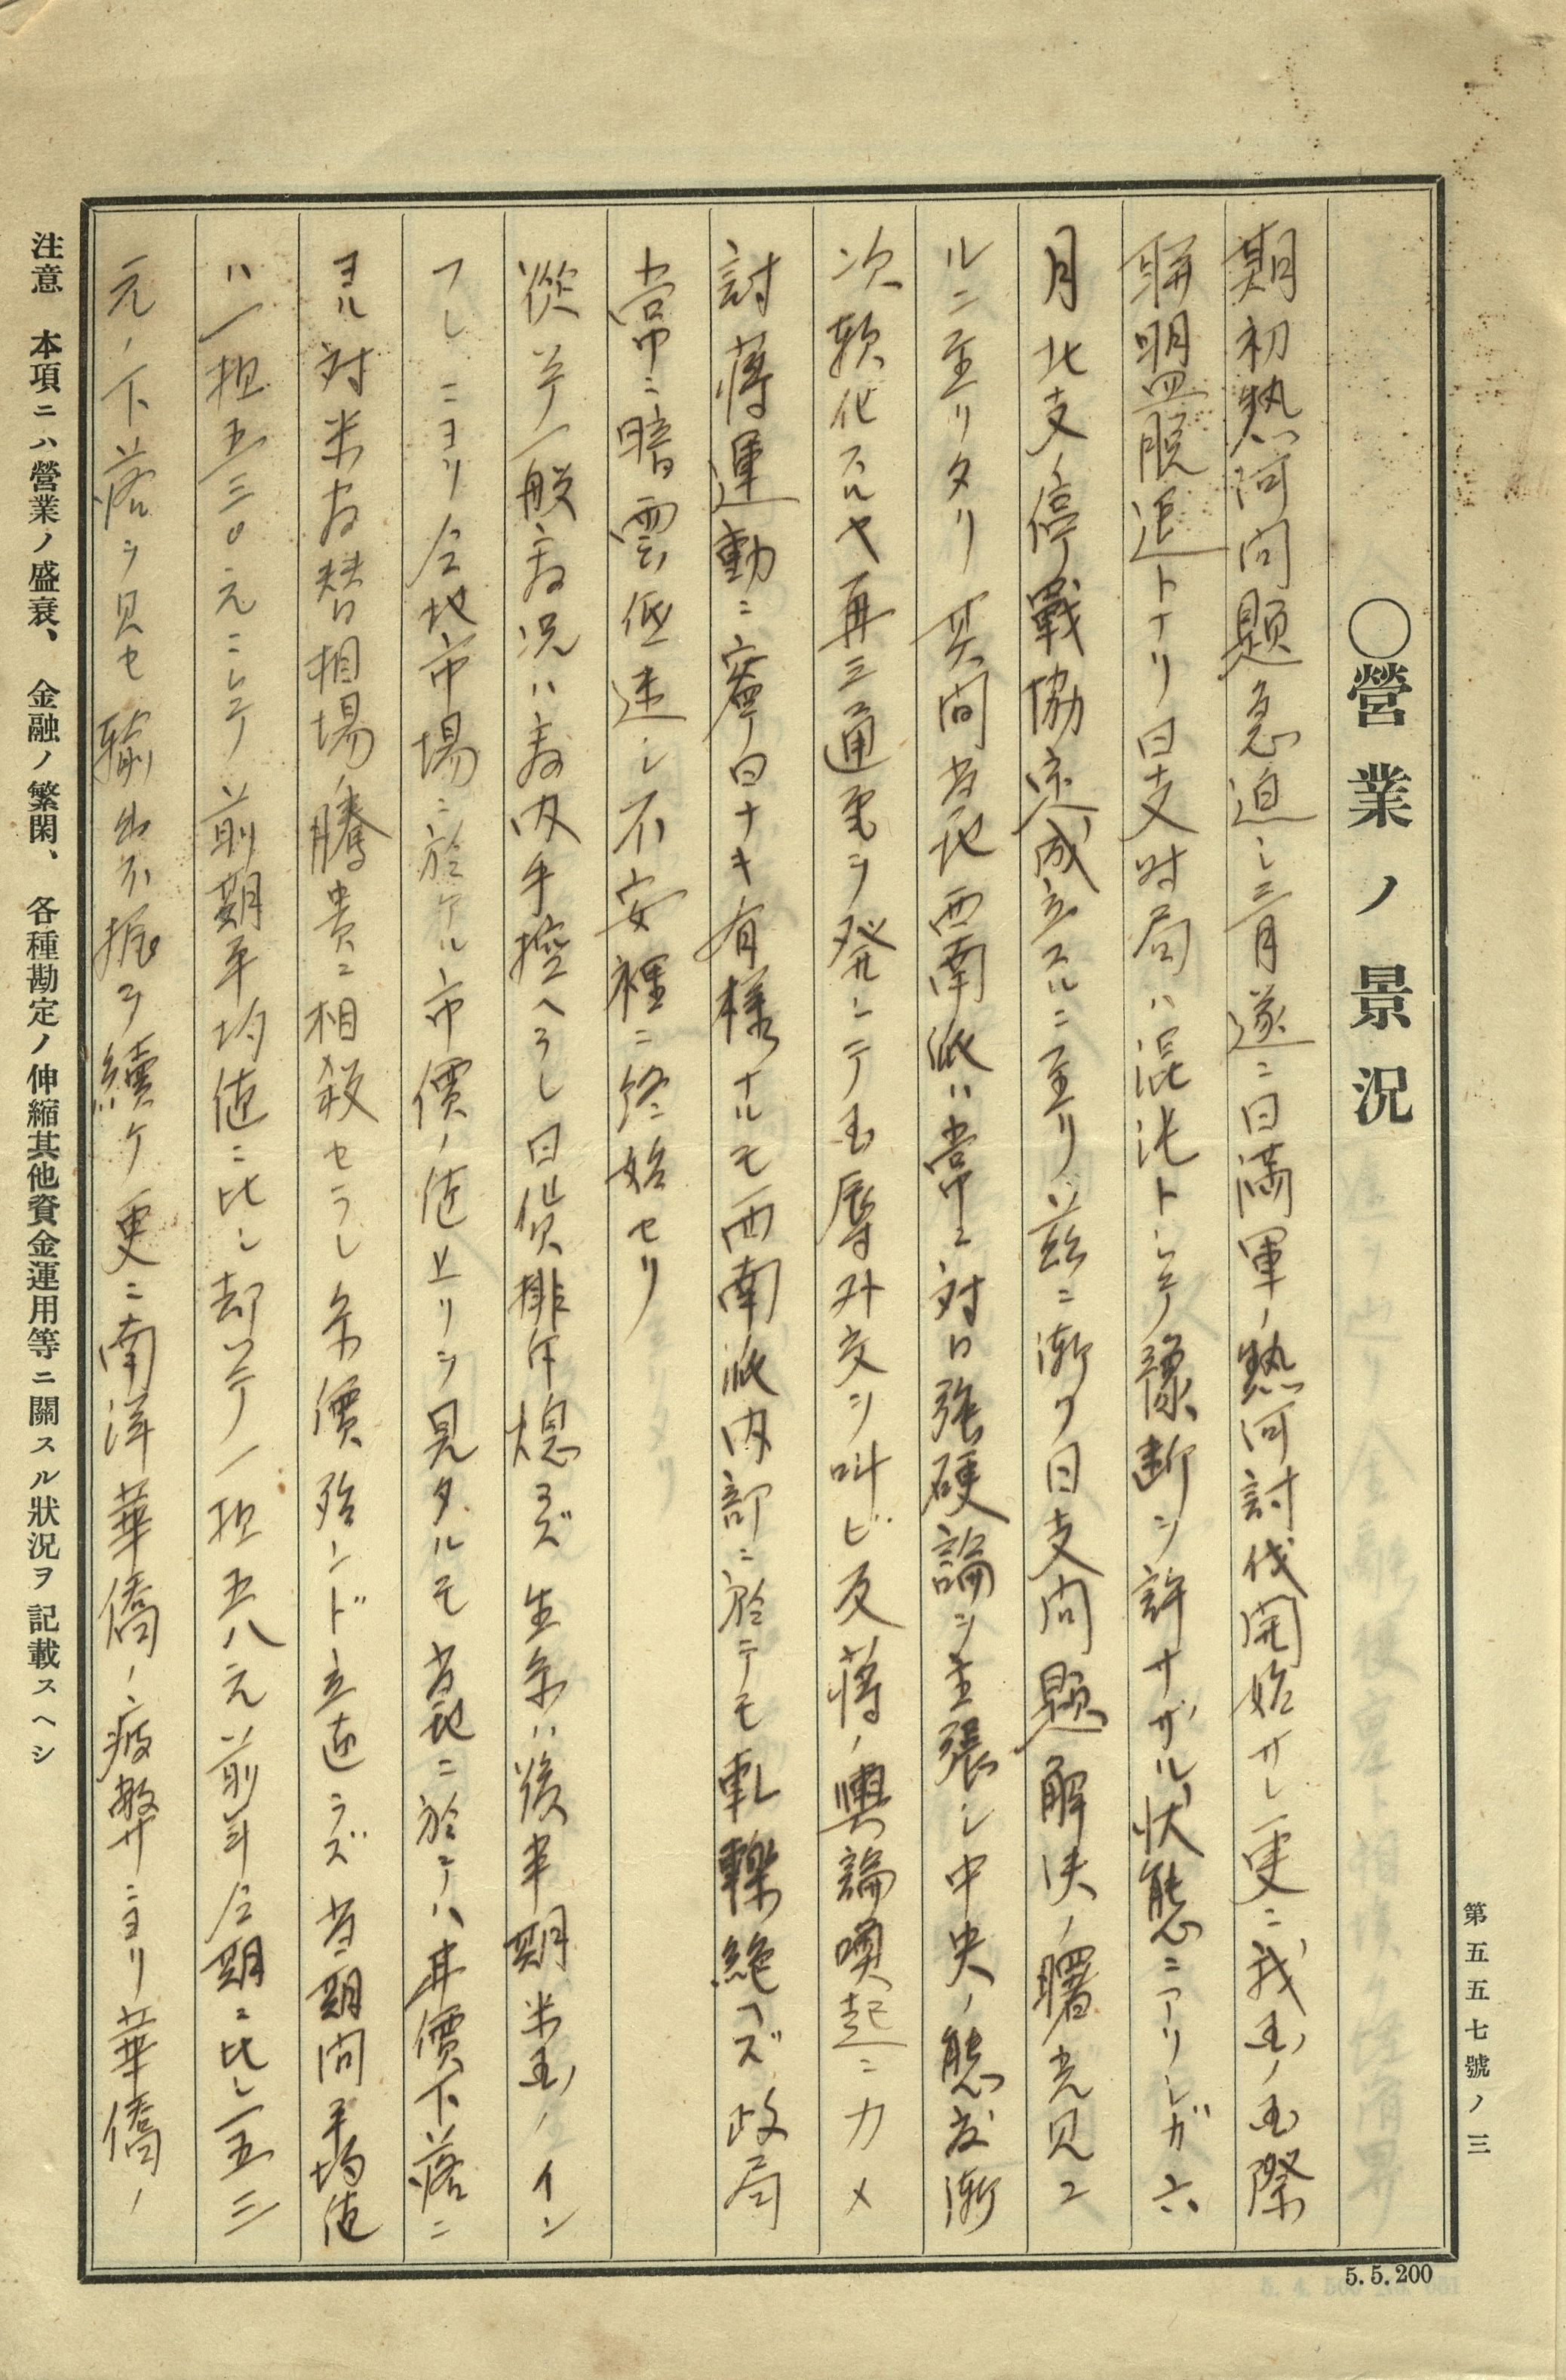 第五五七號ノ三
○營業ノ景況
期初熱河問題急迫シ三月遂ニ日滿軍ノ熱河討伐開始サレ更ニ我国ノ国際
聯盟脱退トナリ日支時局ハ混沌トシテ豫断ヲ許サザル状態ニアリシガ六
月北支ノ停戰協定成立スルニ至リ茲ニ漸ク日支問題解決ノ曙光見ユ
ルニ至リタリ 其間当地西南派ハ常ニ対日強硬論ヲ主張シ中央ノ態度漸
次軟化スルヤ再三通電ヲ発シテ国辱外交ヲ叫ビ反蒋ノ輿論喚起ニカメ
討蒋運動ニ寧日ナキ有様ナルモ西南派内部ニ於テモ軋轢絶へズ政局
常ニ暗雲低迷シ不安裡ニ終始セリ
従テ一般商況ハ商内手控ヘラレ日貨排斥熄マズ 生糸ハ後半期米国ノイン
フレニヨリ仝地市場ニ於ケル市價ノ値上リヲ見タルモ当地ニ於テハ弗價下落ニ
ヨル対米為替相場ノ騰貴ニ相殺セラレ糸價殆ンド立直ラズ 当期間平均値
ハ一担五三〇元ニシテ前期平均値ニ比シ却テ一担五八元前年仝期ニ比シ一五三
元ノ下落ヲ見セ 輸出不振ヲ續ケ更ニ南洋華僑ノ疲弊ニヨリ華僑ノ
注意 本項ニハ營業ノ盛衰、金融ノ繁閑、各種勘定ノ伸縮其他資金運用等ニ關スル狀況ヲ記載スヘシ
5.5.200